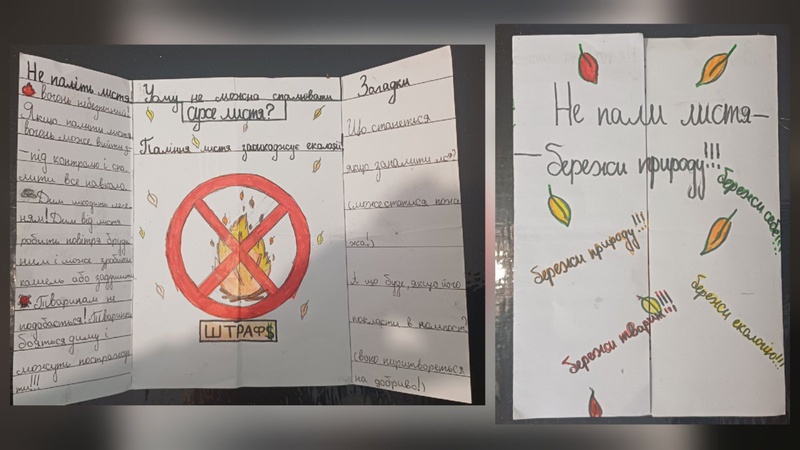 Не паліть листя
вогонь небезпечний!
Якщо палити листя
вогонь може вийти з-
під контролю і спа-
лити все навколо.
Дим шкодить леге-
ням! Дим від листя
робить повітря бруд-
ним і може зробити
кашель або задушити
Тваринам не
подобається! Тварини
бояться диму і
можуть постражда-
ти!!!
Чому не можна спалювати
сухе листя?
Паління листя зашкоджує екології
ШТРАФ$
Загадки
Що станеться
якщо запалити листя?
(може статися поже
жа!)
А що буде, якщо його
покласти в компост?
(воно перетвореться
на добриво!)
Не пали листя-
-бережи природу!!!
бережи себе!!!
бережи природу!!!
бережи тварин!!!
бережи екологію!!!